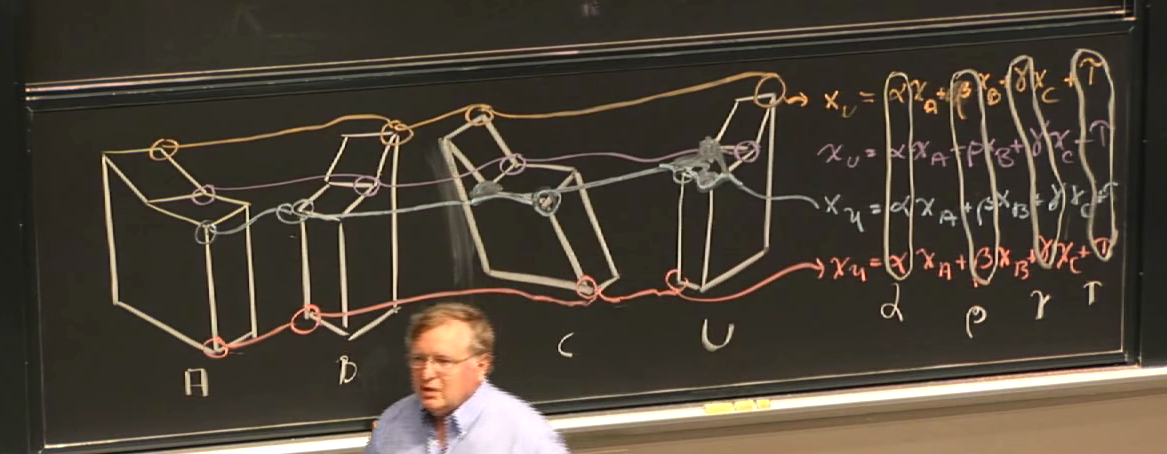 x_U = αx_A + βx_B + γx_C + τ
x_U = αx_A + βx_B + γx_C + τ
x_U = αx_A + βx_B + γx_C + τ
x_U = αx_A + βx_B + γx_C + τ
α β γ τ
A B C U